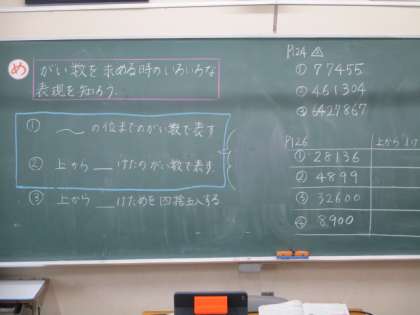 め
がい数を求める時のいろいろな
表現を知ろう.
① 〜 の位までのがい数で表す
② 上から __ けたのがい数で表す.
③ 上から __ けためを四捨五入する
P124 ⚠
① 77455
② 461304
③ 6427867
P126 上から1け
① 28136
② 4899
③ 32600
④ 8900